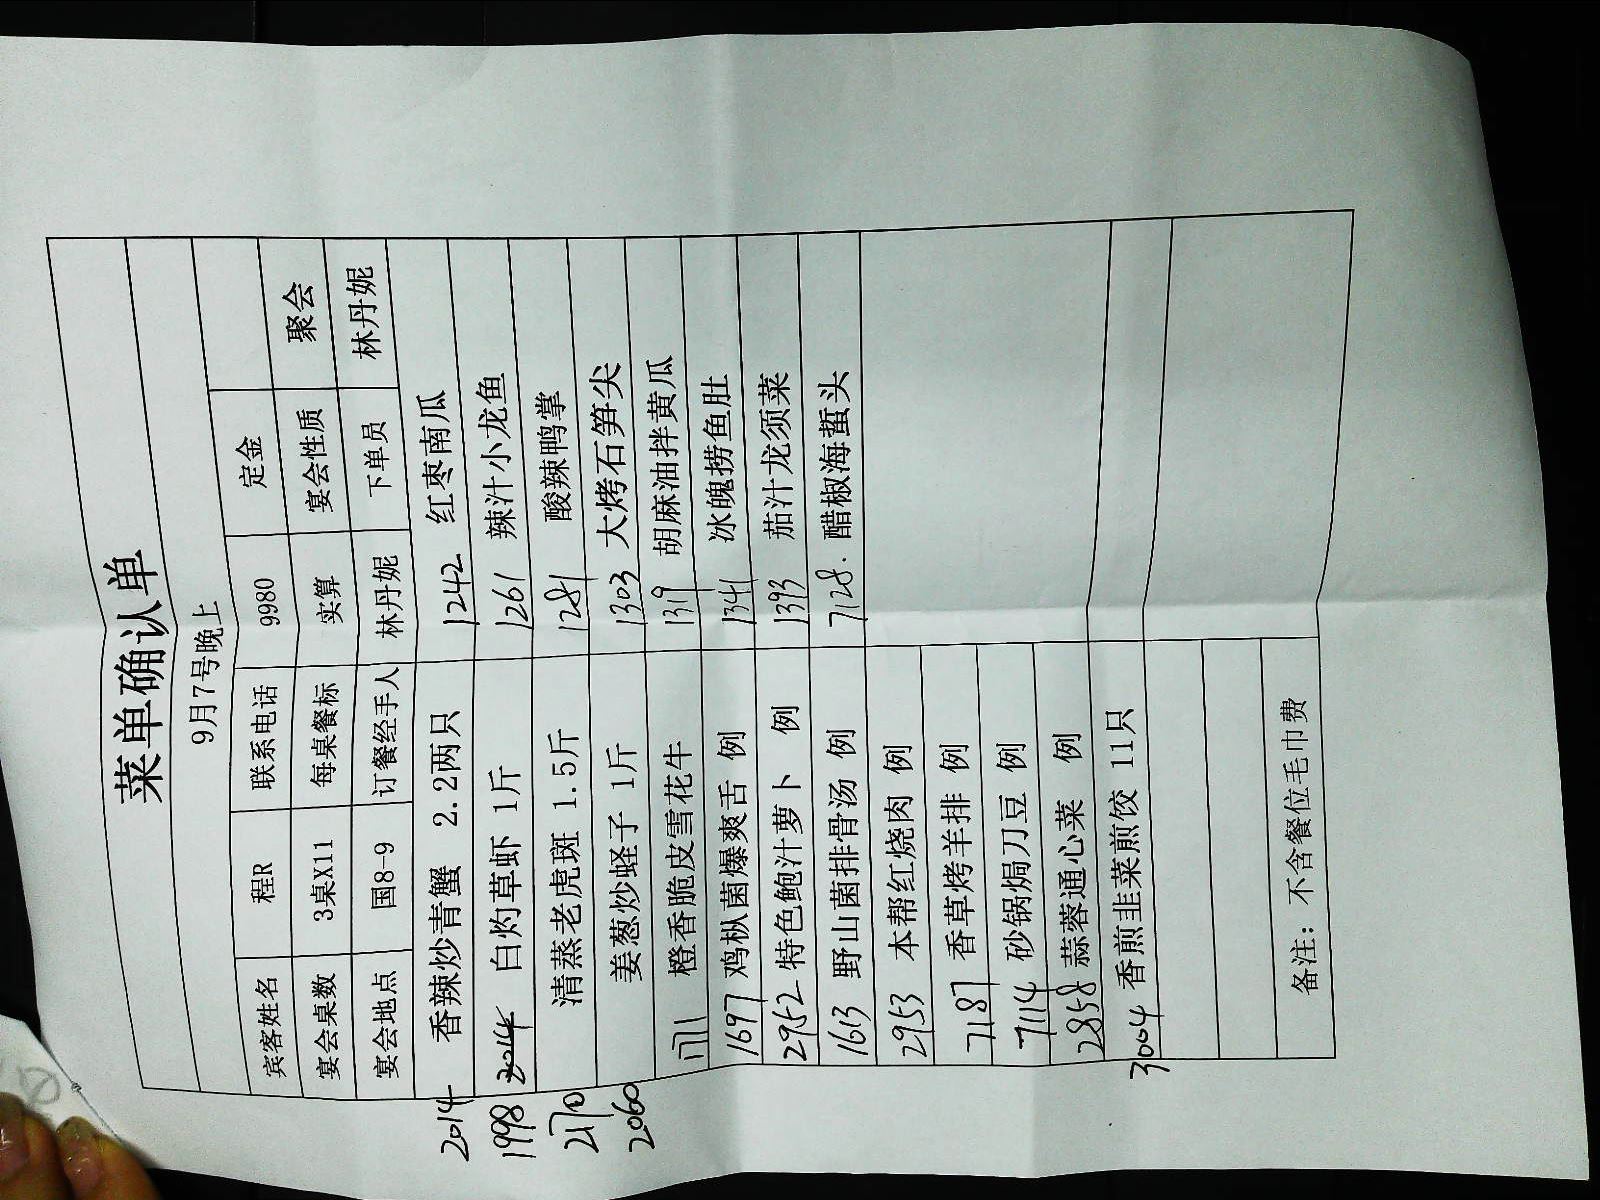 菜单确认单
9月7号晚上
宾客姓名 程R 联系电话 9980 定金
宴会桌数 3桌X11 每桌餐标 实算 宴会性质 聚会
宴会地点 国8-9 订餐经手人 林丹妮 下单员 林丹妮
2014 香辣炒青蟹 2.2两只 1242 红枣南瓜
1998 白灼草虾 1斤 1261 辣汁小龙鱼
2170 清蒸老虎斑 1.5斤 1281 酸辣鸭掌
2060 姜葱炒蛏子 1斤 1303 大烤石笋尖
1771 橙香脆皮雪花牛 1319 胡麻油拌黄瓜
1697 鸡枞菌爆爽舌 例 1341 冰魄捞鱼肚
2952 特色鲍汁萝卜 例 1393 茄汁龙须菜
1613 野山菌排骨汤 例 7128. 醋椒海蜇头
2953 本帮红烧肉 例
7187 香草烤羊排 例
7114 砂锅焗刀豆 例
2858 蒜蓉通心菜 例
3004 香煎韭菜煎饺 11只
备注：不含餐位毛巾费